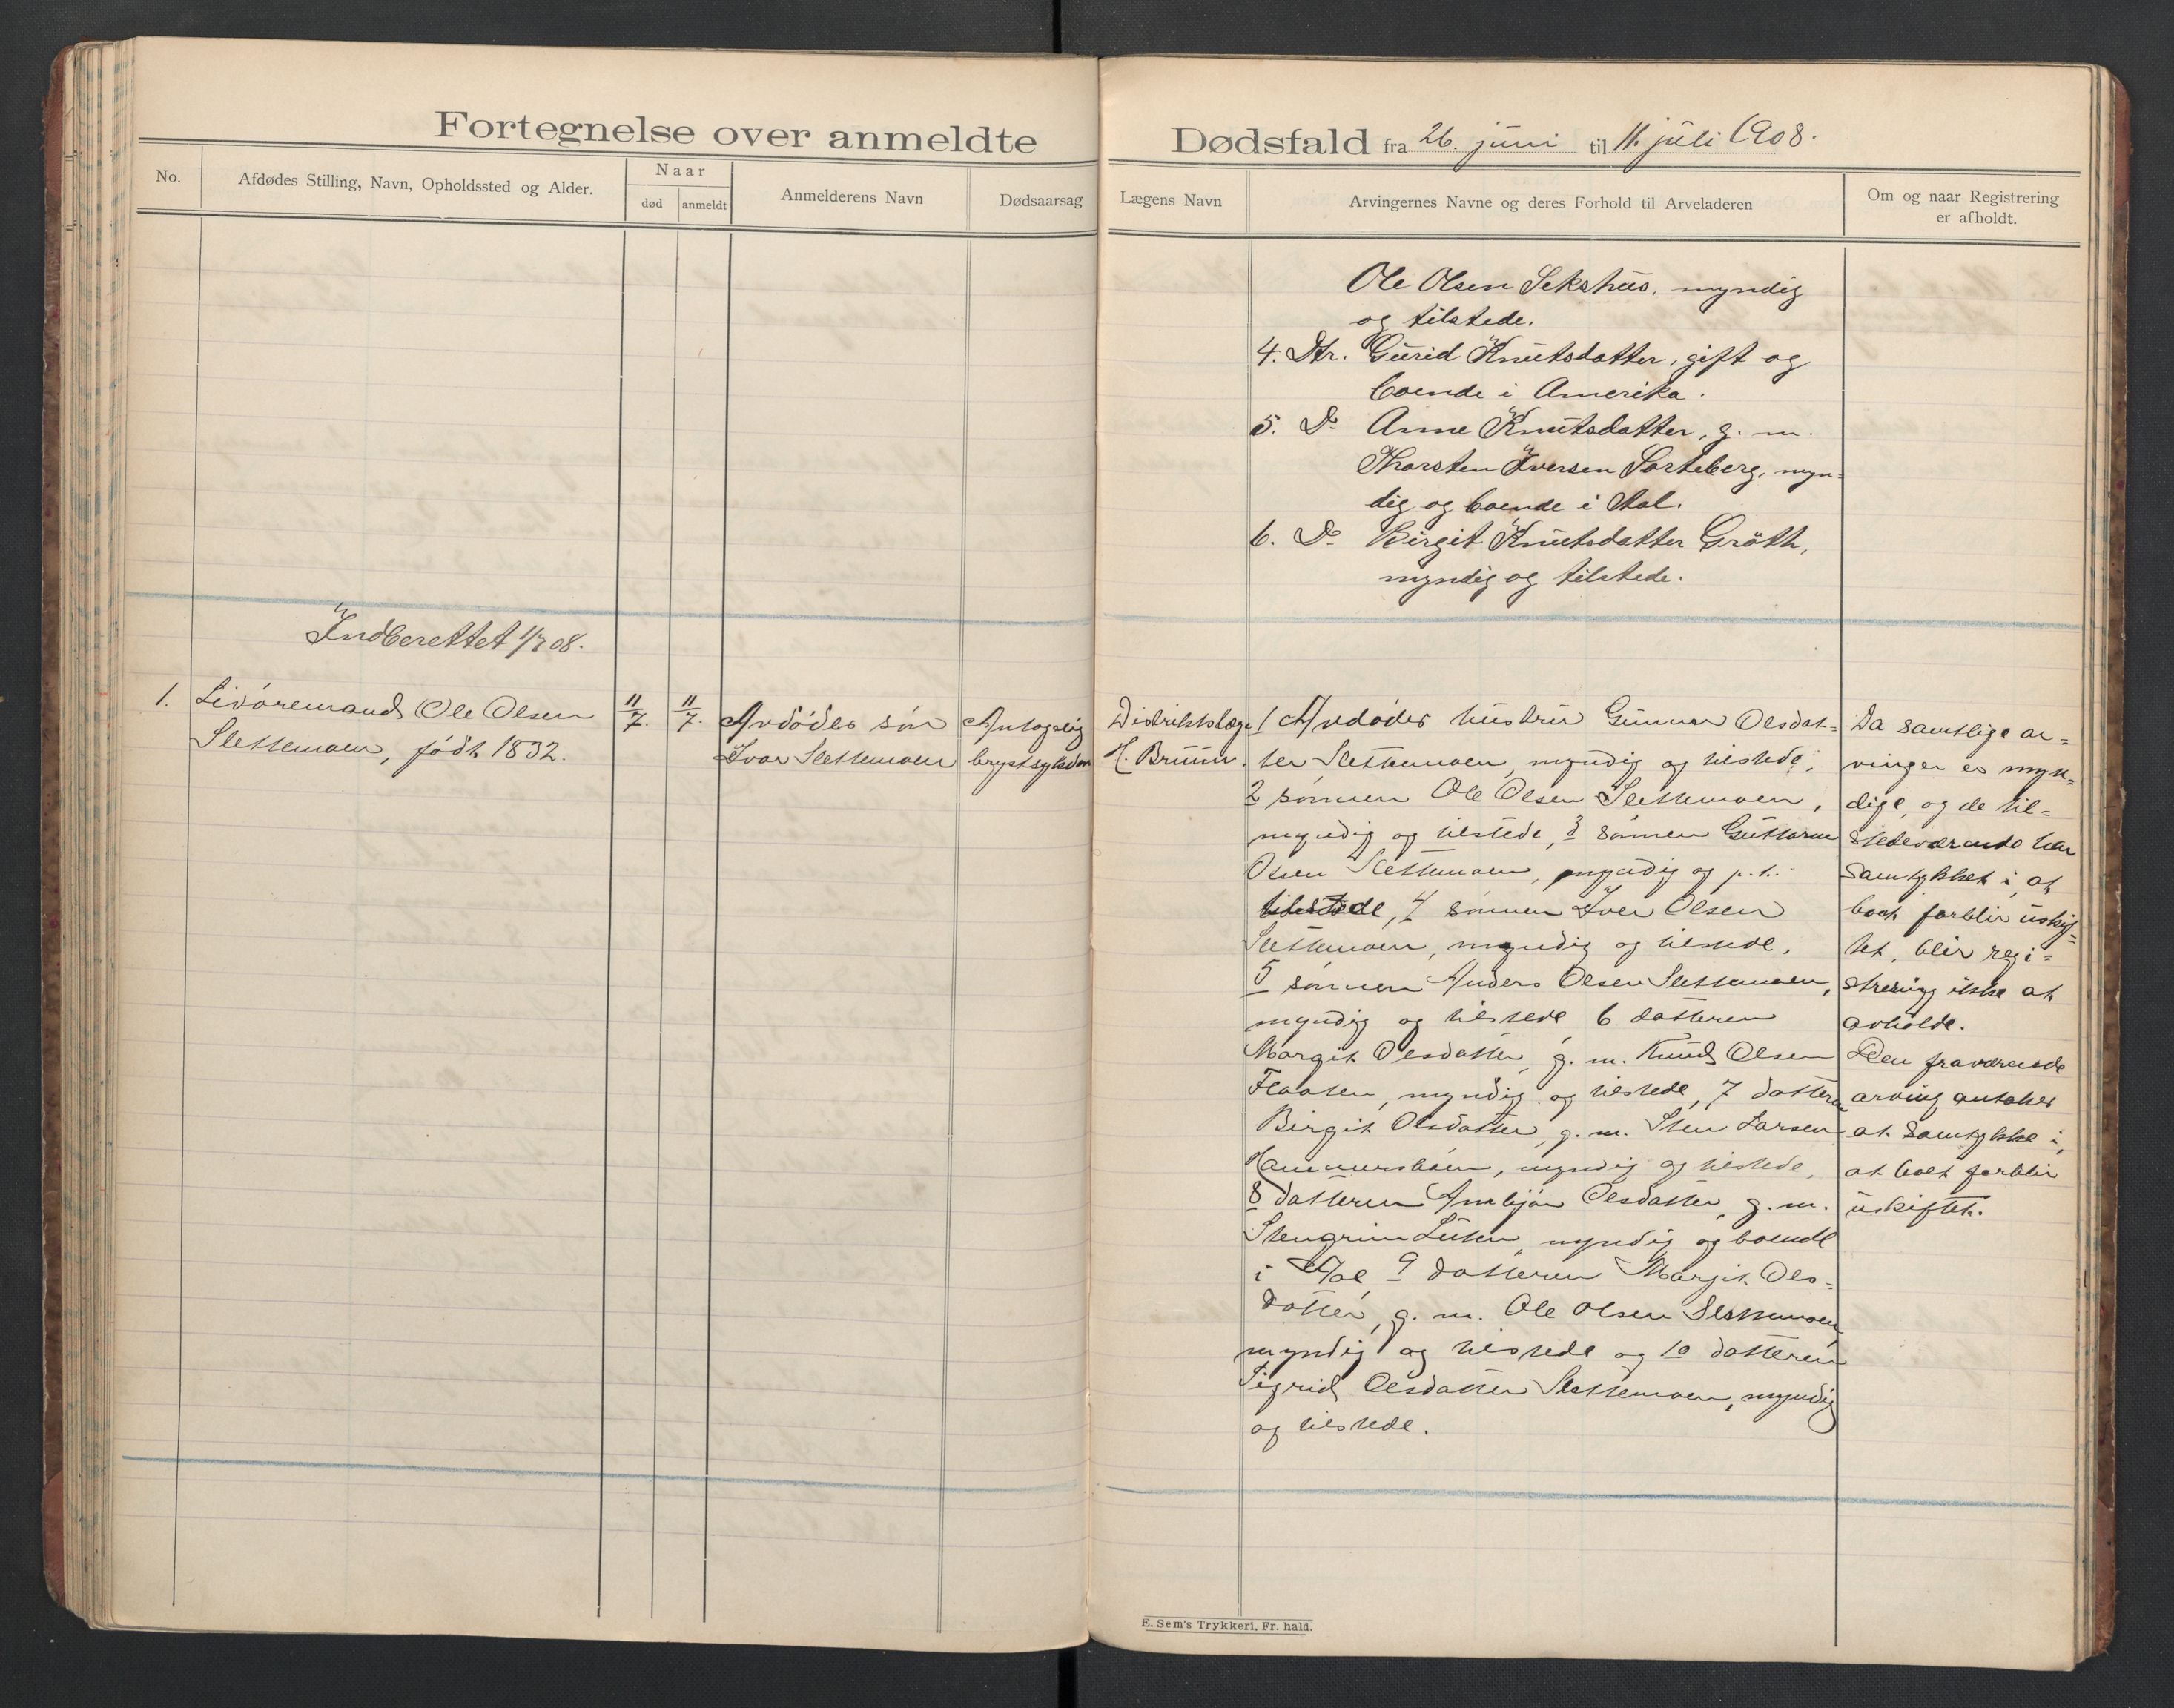 Fortegnelse over anmeldte
Dødsfald fra 26. juni til 11. juli 1908.
No.
Afdødes Stilling, Navn, Opholdssted og Alder.
Naar
død
anmeldt
Anmelderens Navn
Dødsaarsag
Lægens Navn
Arvingernes Navne og deres Forhold til Arveladeren
Om og naar Registrering
er afholdt.
Ole Olsen Sekshus, myndig
og tilstede.
4. Dtr. Gurid Knutsdatter, gift og
boende i Amerika.
5. Do Anne Knutsdatter, g. m.
Thorsten Iversen Sorteberg, myn-
dig og boende i Aal.
6. Do Birgit Knutsdatter Gröth,
myndig og tilstede.
Indberettet 11/7 08.
1. Livöremand Ole Olsen
Slettemoen, født 1832.
11/7.
11/7.
Avdödes sön
Ivar Slettemoen
Antagelig
brystsygdom
Distriktslæge
H. Bruun.
1 Avdødes hustru Gunnar Olsdat-
ter Slettemoen, myndig og tilstede,
2 sønnen Ole Olsen Slettemoen,
myndig og tilstede, 3 sønnen Guttorm
Olsen Slettemoen, myndig og p.t.
tilstede, 4 sønnen Iver Olsen
Slettemoen, myndig og tilstede,
5 sønnen Anders Olsen Slettemoen,
myndig og tilstede 6 datteren
Margit Olsdatter, g. m. Knud Olsen
Flaaten, myndig og tilstede, 7 datteren
Birgit Olsdatter, g. m. Sten Larsen
Hammersbøen, myndig og tilstede,
8 datteren Ambjør Olsdatter, g. m.
Stengrim myndig og boende
i Aal, 9 datteren Margit Ols-
datter, g. m. Ole Olsen Slettemoen,
myndig og tilstede og 10 datteren
Sigrid Olsdatter Slettemoen, myndig
og tilstede.
Da samtlige ar-
vinger er myn-
dige, og de til-
stedeværende har
samtykket i, at
boet forblir uskif-
tet, blir regi-
strering ikke at
avholde.
Den fraværende
arving antakes
at samtykke i,
at boet forblir
uskiftet.
E. Sem's Trykkeri, Fr. hald.